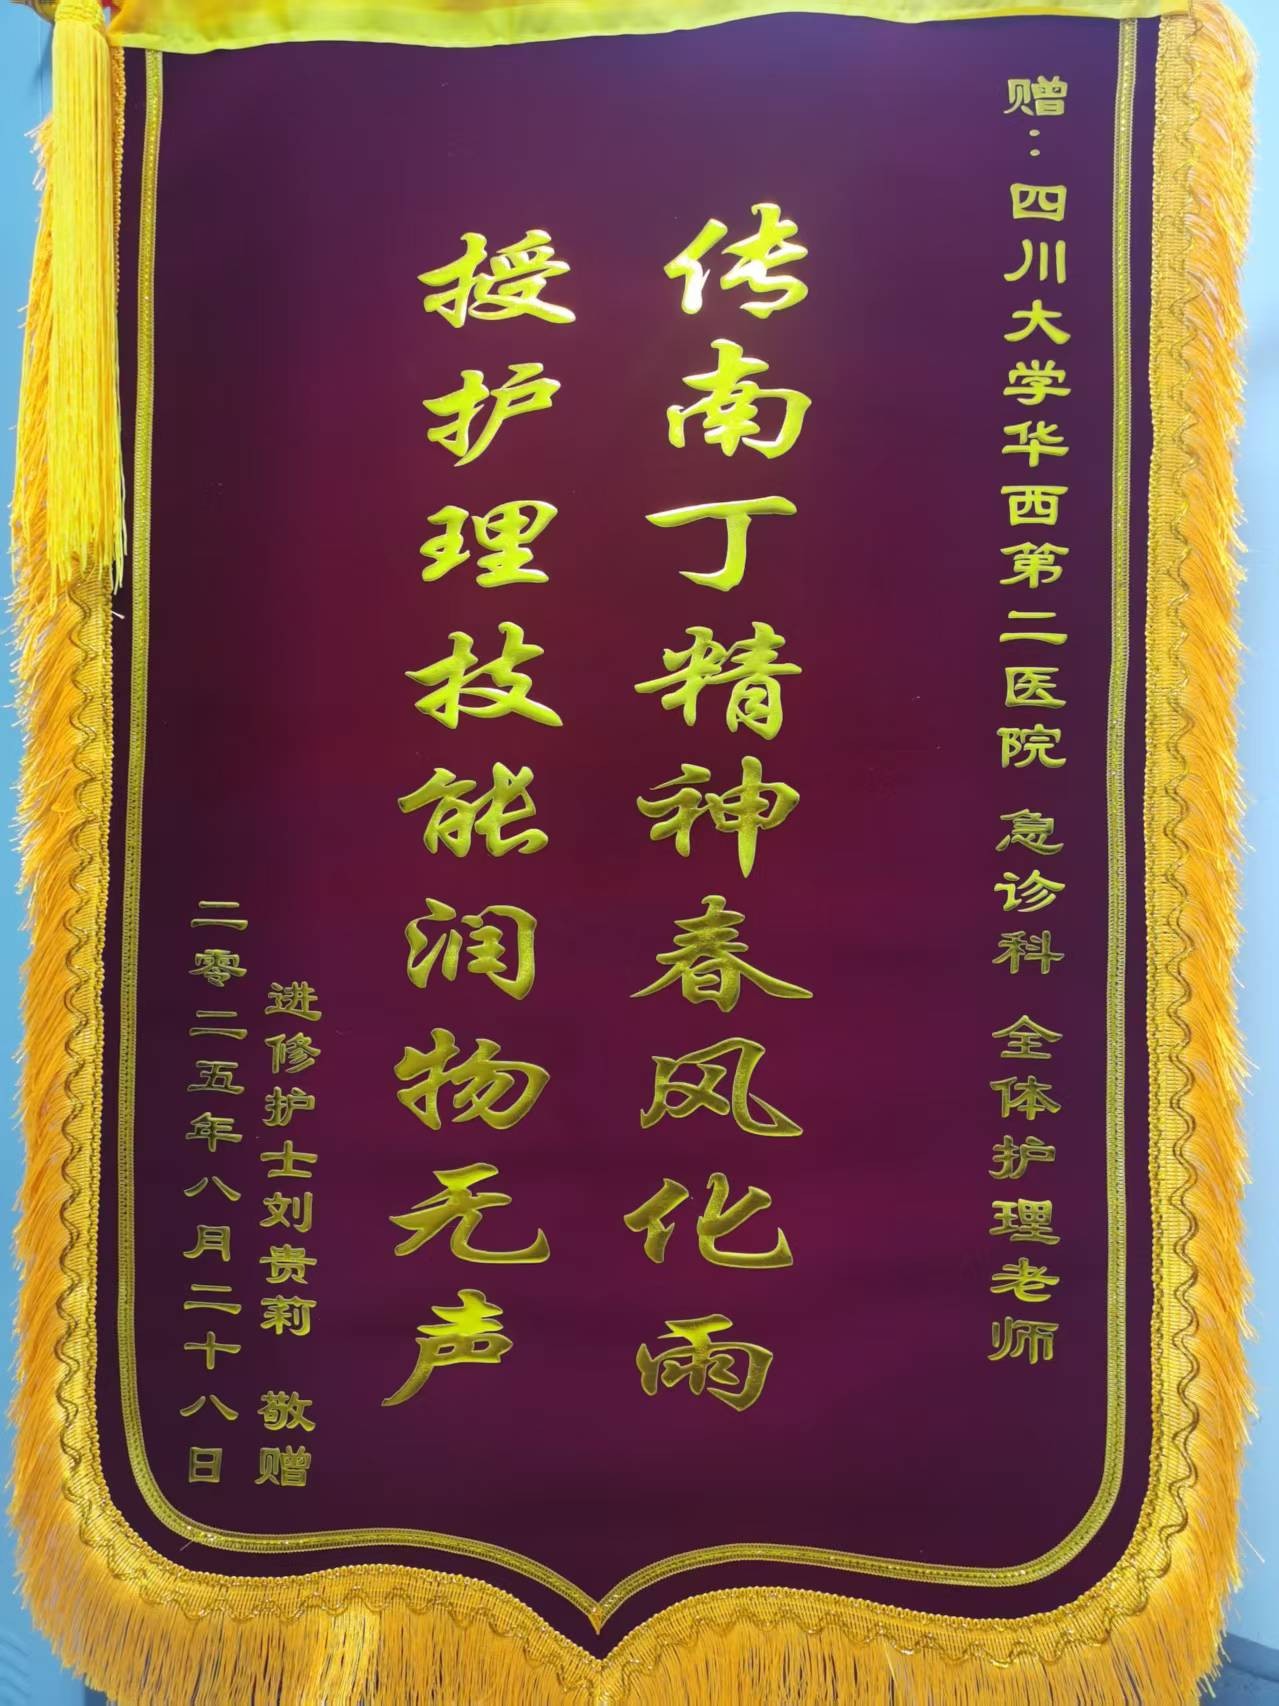 赠：四川大学华西第二医院 急诊科 全体护理老师
传南丁精神春风化雨
授护理技能润物无声
进修护士刘贵莉 敬赠
二零二五年八月二十八日